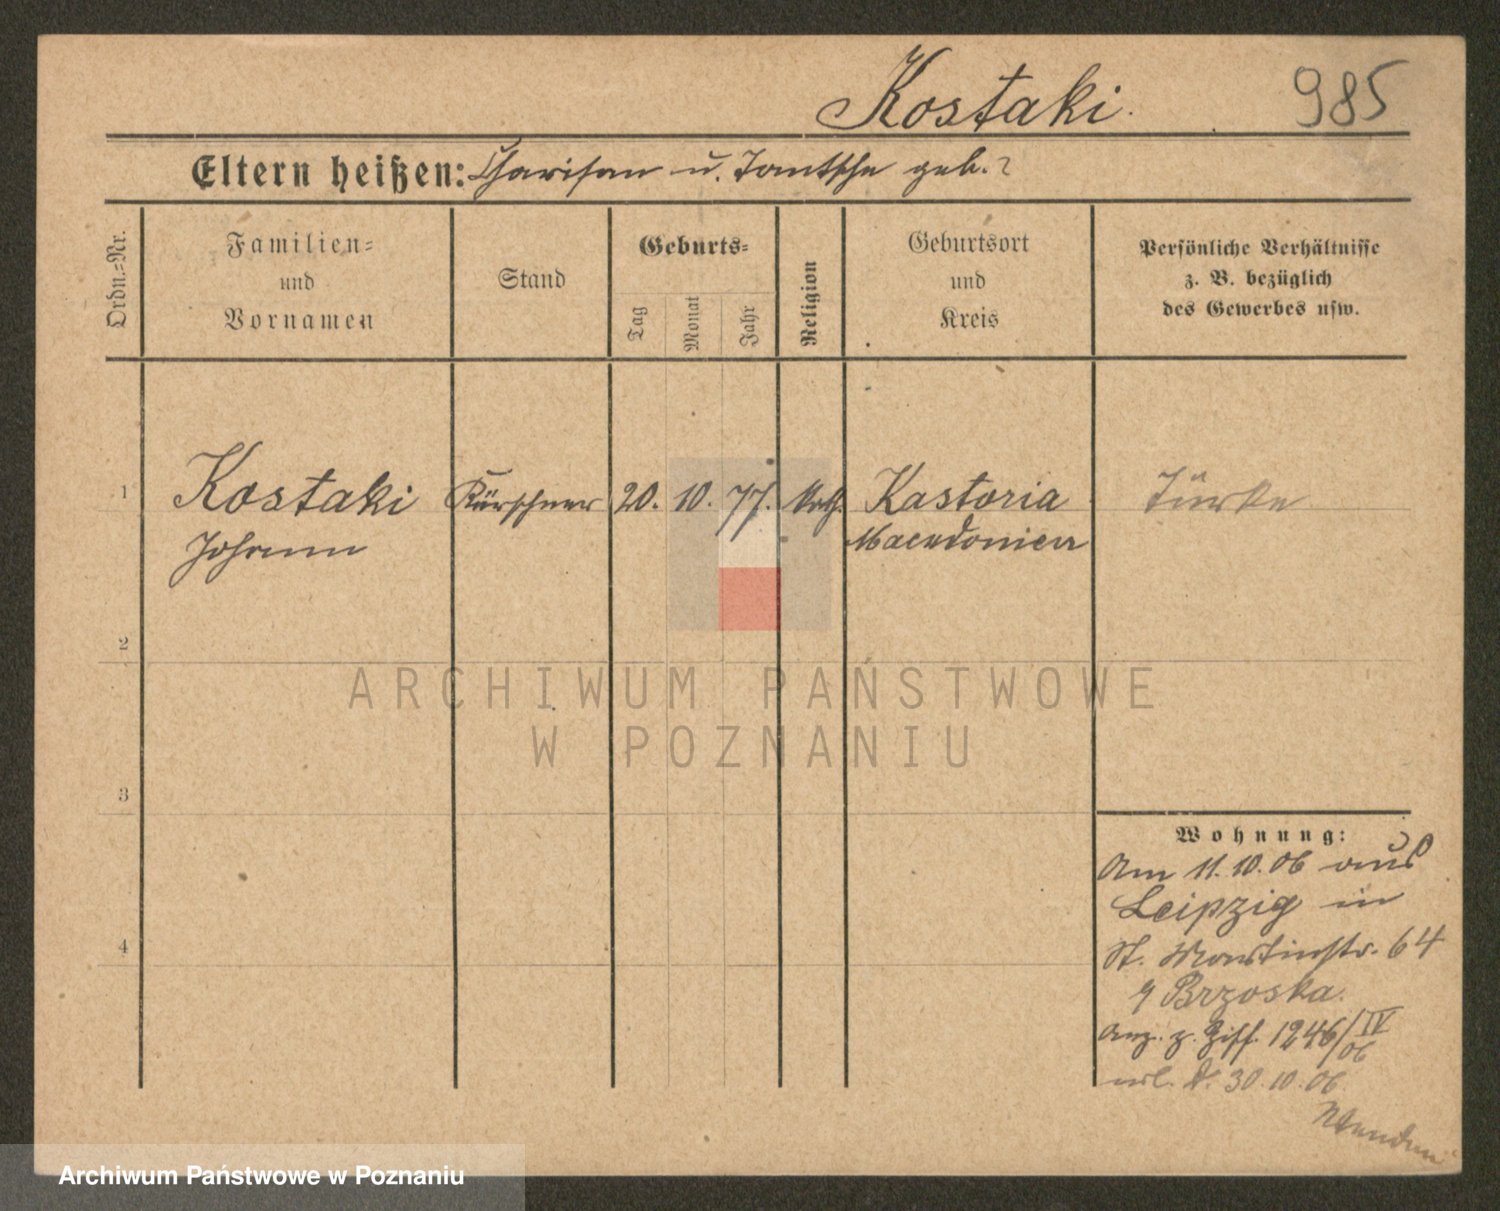 Kostaki.
985
Eltern heißen: Charisan u. Tantsche geb. ?
Ordn.=Nr.
Familien=
und
Vornamen
Stand
Geburts=
Tag
Monat
Jahr
Religion
Geburtsort
und
Kreis
Persönliche Verhältnisse
z. B. bezüglich
des Gewerbes usw.
1
Kostaki
Johann
Kürschner
20. 10. 77.
Kastoria
Macedonien
Türke
2
ARCHIWUM PAŃSTWOWE
W POZNANIU
3
Wohnung:
Am 11.10.06 aus
Leipzig in
St. Martinstr. 64
Brzoska.
Anz. z. Ziff. 1246/IV
06
30.10.06.
Wenden
4
Archiwum Państwowe w Poznaniu